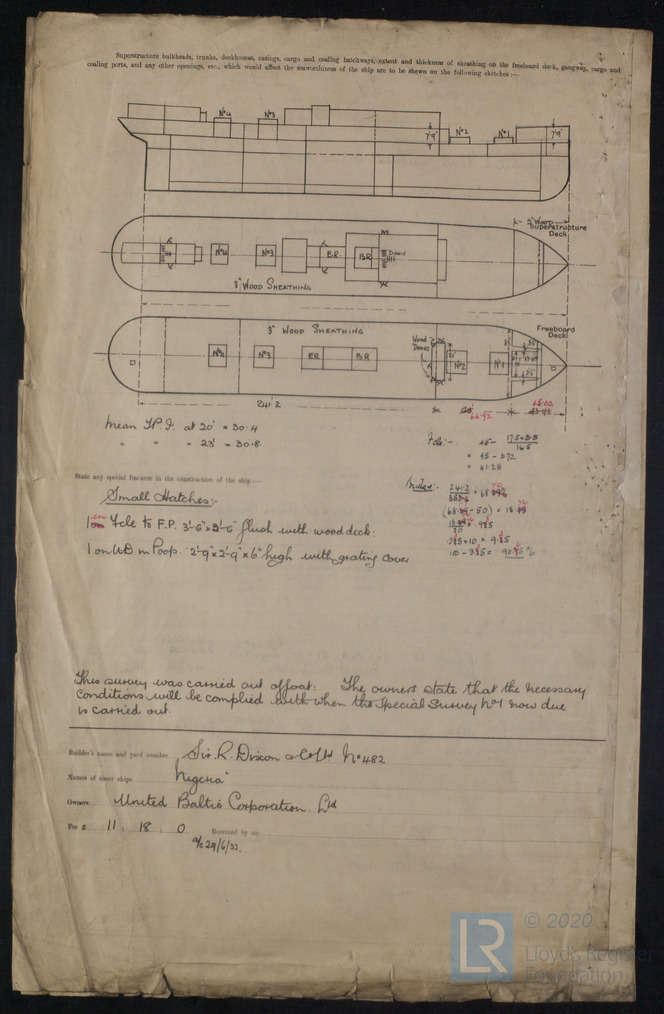 Superstructure bulkheads, trunks, deckhouses, casings, cargo and coaling hatchways, extent and thickness of sheathing on the freeboard deck, gangway, cargo and
coaling ports, and any other openings, etc., which would affect the seaworthiness of the ship are to be shewn on the following sketches :—
No4
No3
7'9"
No2
No1
7'9"
3" Wood
Superstructure
Deck
No4
No3
ER
BR
Down
3" Wood Sheathing
3" Wood Sheathing
Freeboard
Deck
Wood
Doors
No3
ER
BR
No2
No1
241.2
66.92
Mean T.P.I. at 20' = 30.4
" " " 23' = 30.8
Fcle:-
45 -
= 45 - 3.72
= 41.28
State any special features in the construction of the ship :—
Small Hatches:-
1 in Fcle to F.P. 3'-6" x 3'-6" flush with wood deck.
1 on UD in Poop. 2'-9" x 2'-9" x 6" high with grating cover
This survey was carried out afloat. The owners state that the necessary
conditions will be complied with when the Special Survey No1 now due
is carried out.
Builder's name and yard number Sir. R. Dixon & Co Ltd No 482
Names of sister ships Nigeria
Owners United Baltic Corporation. Ltd
Fee £ 11 : 18 : 0 Received by me
a/c 29/6/32.
LR
© 2020
Lloyd's Register
Foundation